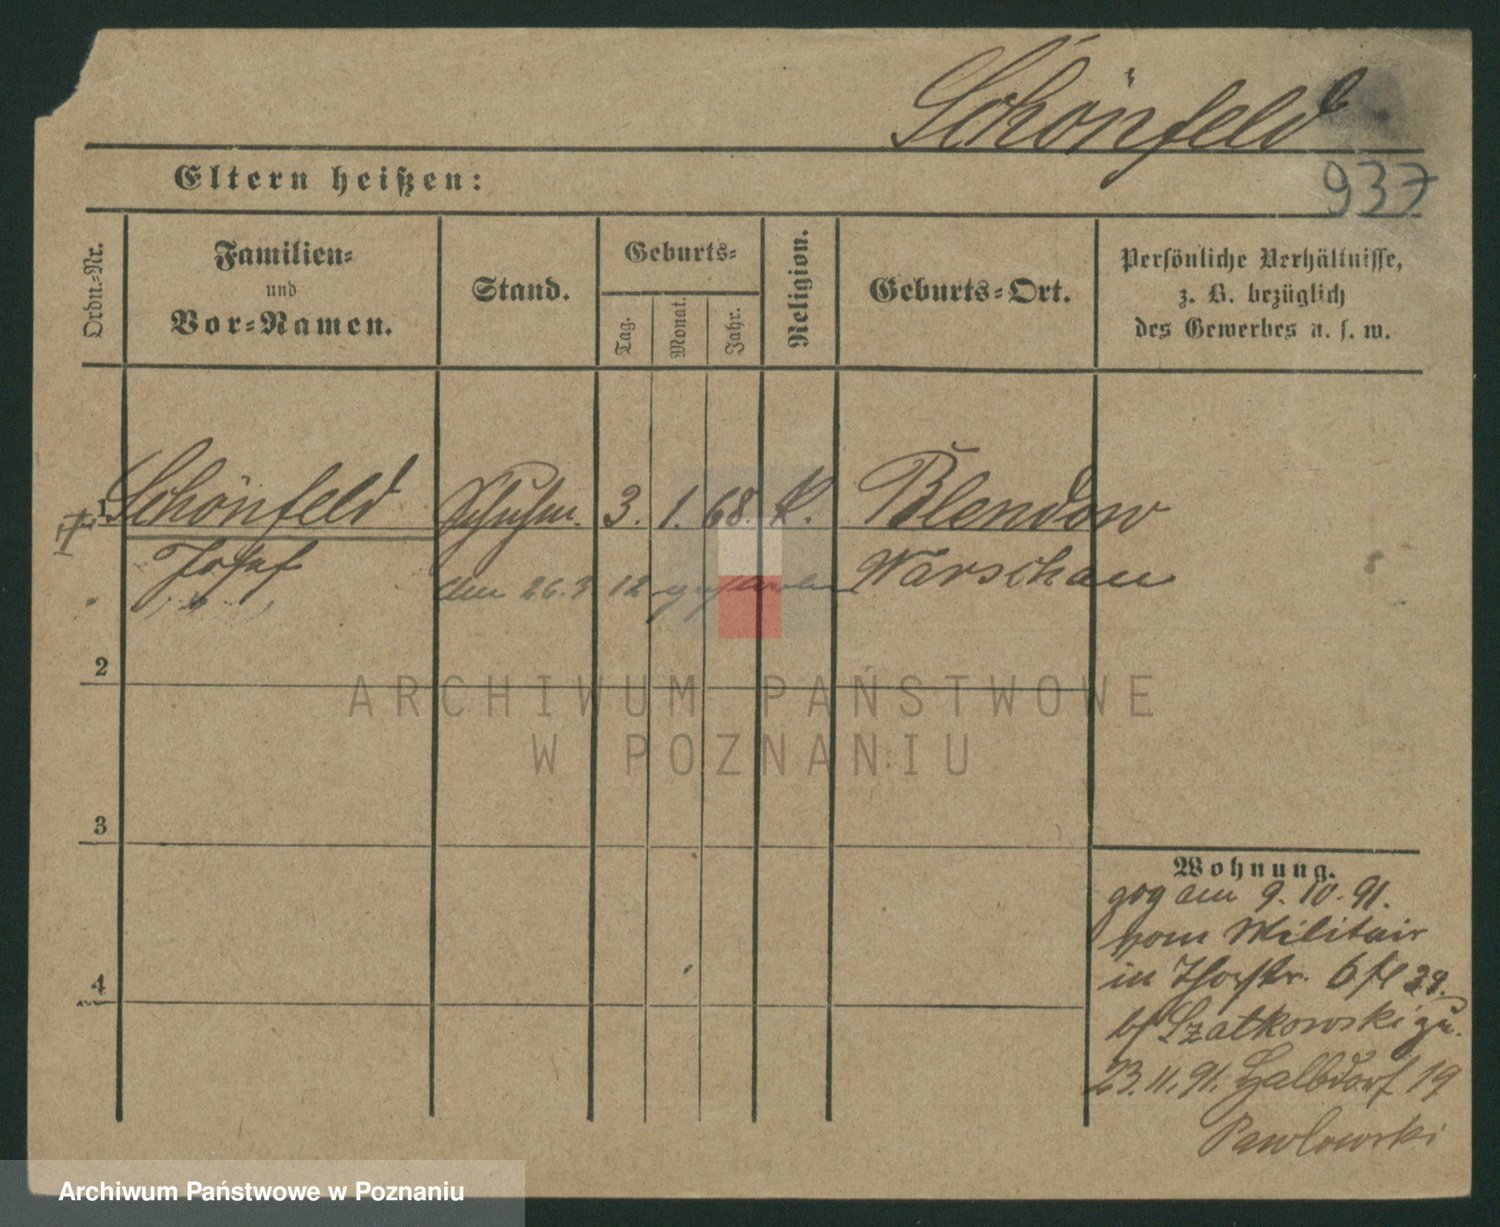 Schönfeld
937
Eltern heißen:
Ordn.-Nr.
Familien-
und
Vor-Namen.
Stand.
Geburts-
Tag.
Monat.
Jahr.
Religion.
Geburts-Ort.
Persönliche Verhältnisse,
z. B. bezüglich
des Gewerbes u. s. w.
1 Schönfeld Schuhm. 3. 1. 68. K. Blendow
Josef Warschau
den 26.3 12 gestorben
2
3
4
Wohnung.
zog am 9. 10. 91.
vom Militair
in Thorstr. 6
bf Szatkowski zu.
23. 11. 91. Halbdorf 19
Pawlowski
ARCHIWUM PAŃSTWOWE
W POZNANIU
Archiwum Państwowe w Poznaniu